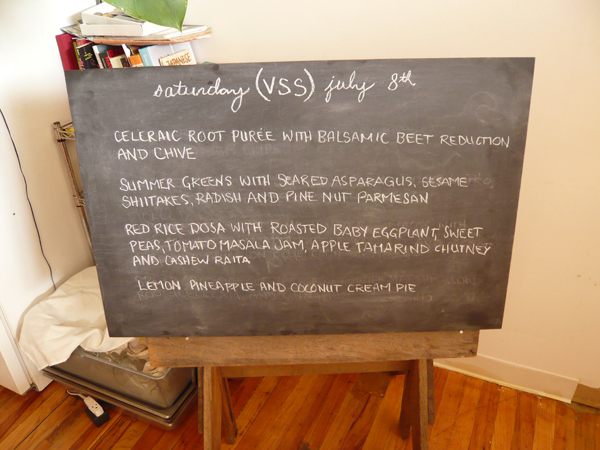 saturday (VSS) july 8th
CELERAIC ROOT PURÉE WITH BALSAMIC BEET REDUCTION
AND CHIVE
SUMMER GREENS WITH SEARED ASPARAGUS, SESAME
SHIITAKES, RADISH AND PINE NUT PARMESAN
RED RICE DOSA WITH ROASTED BABY EGGPLANT, SWEET
PEAS, TOMATO MASALA JAM, APPLE TAMARIND CHUTNEY
AND CASHEW RAITA
LEMON PINEAPPLE AND COCONUT CREAM PIE
JAPANESE